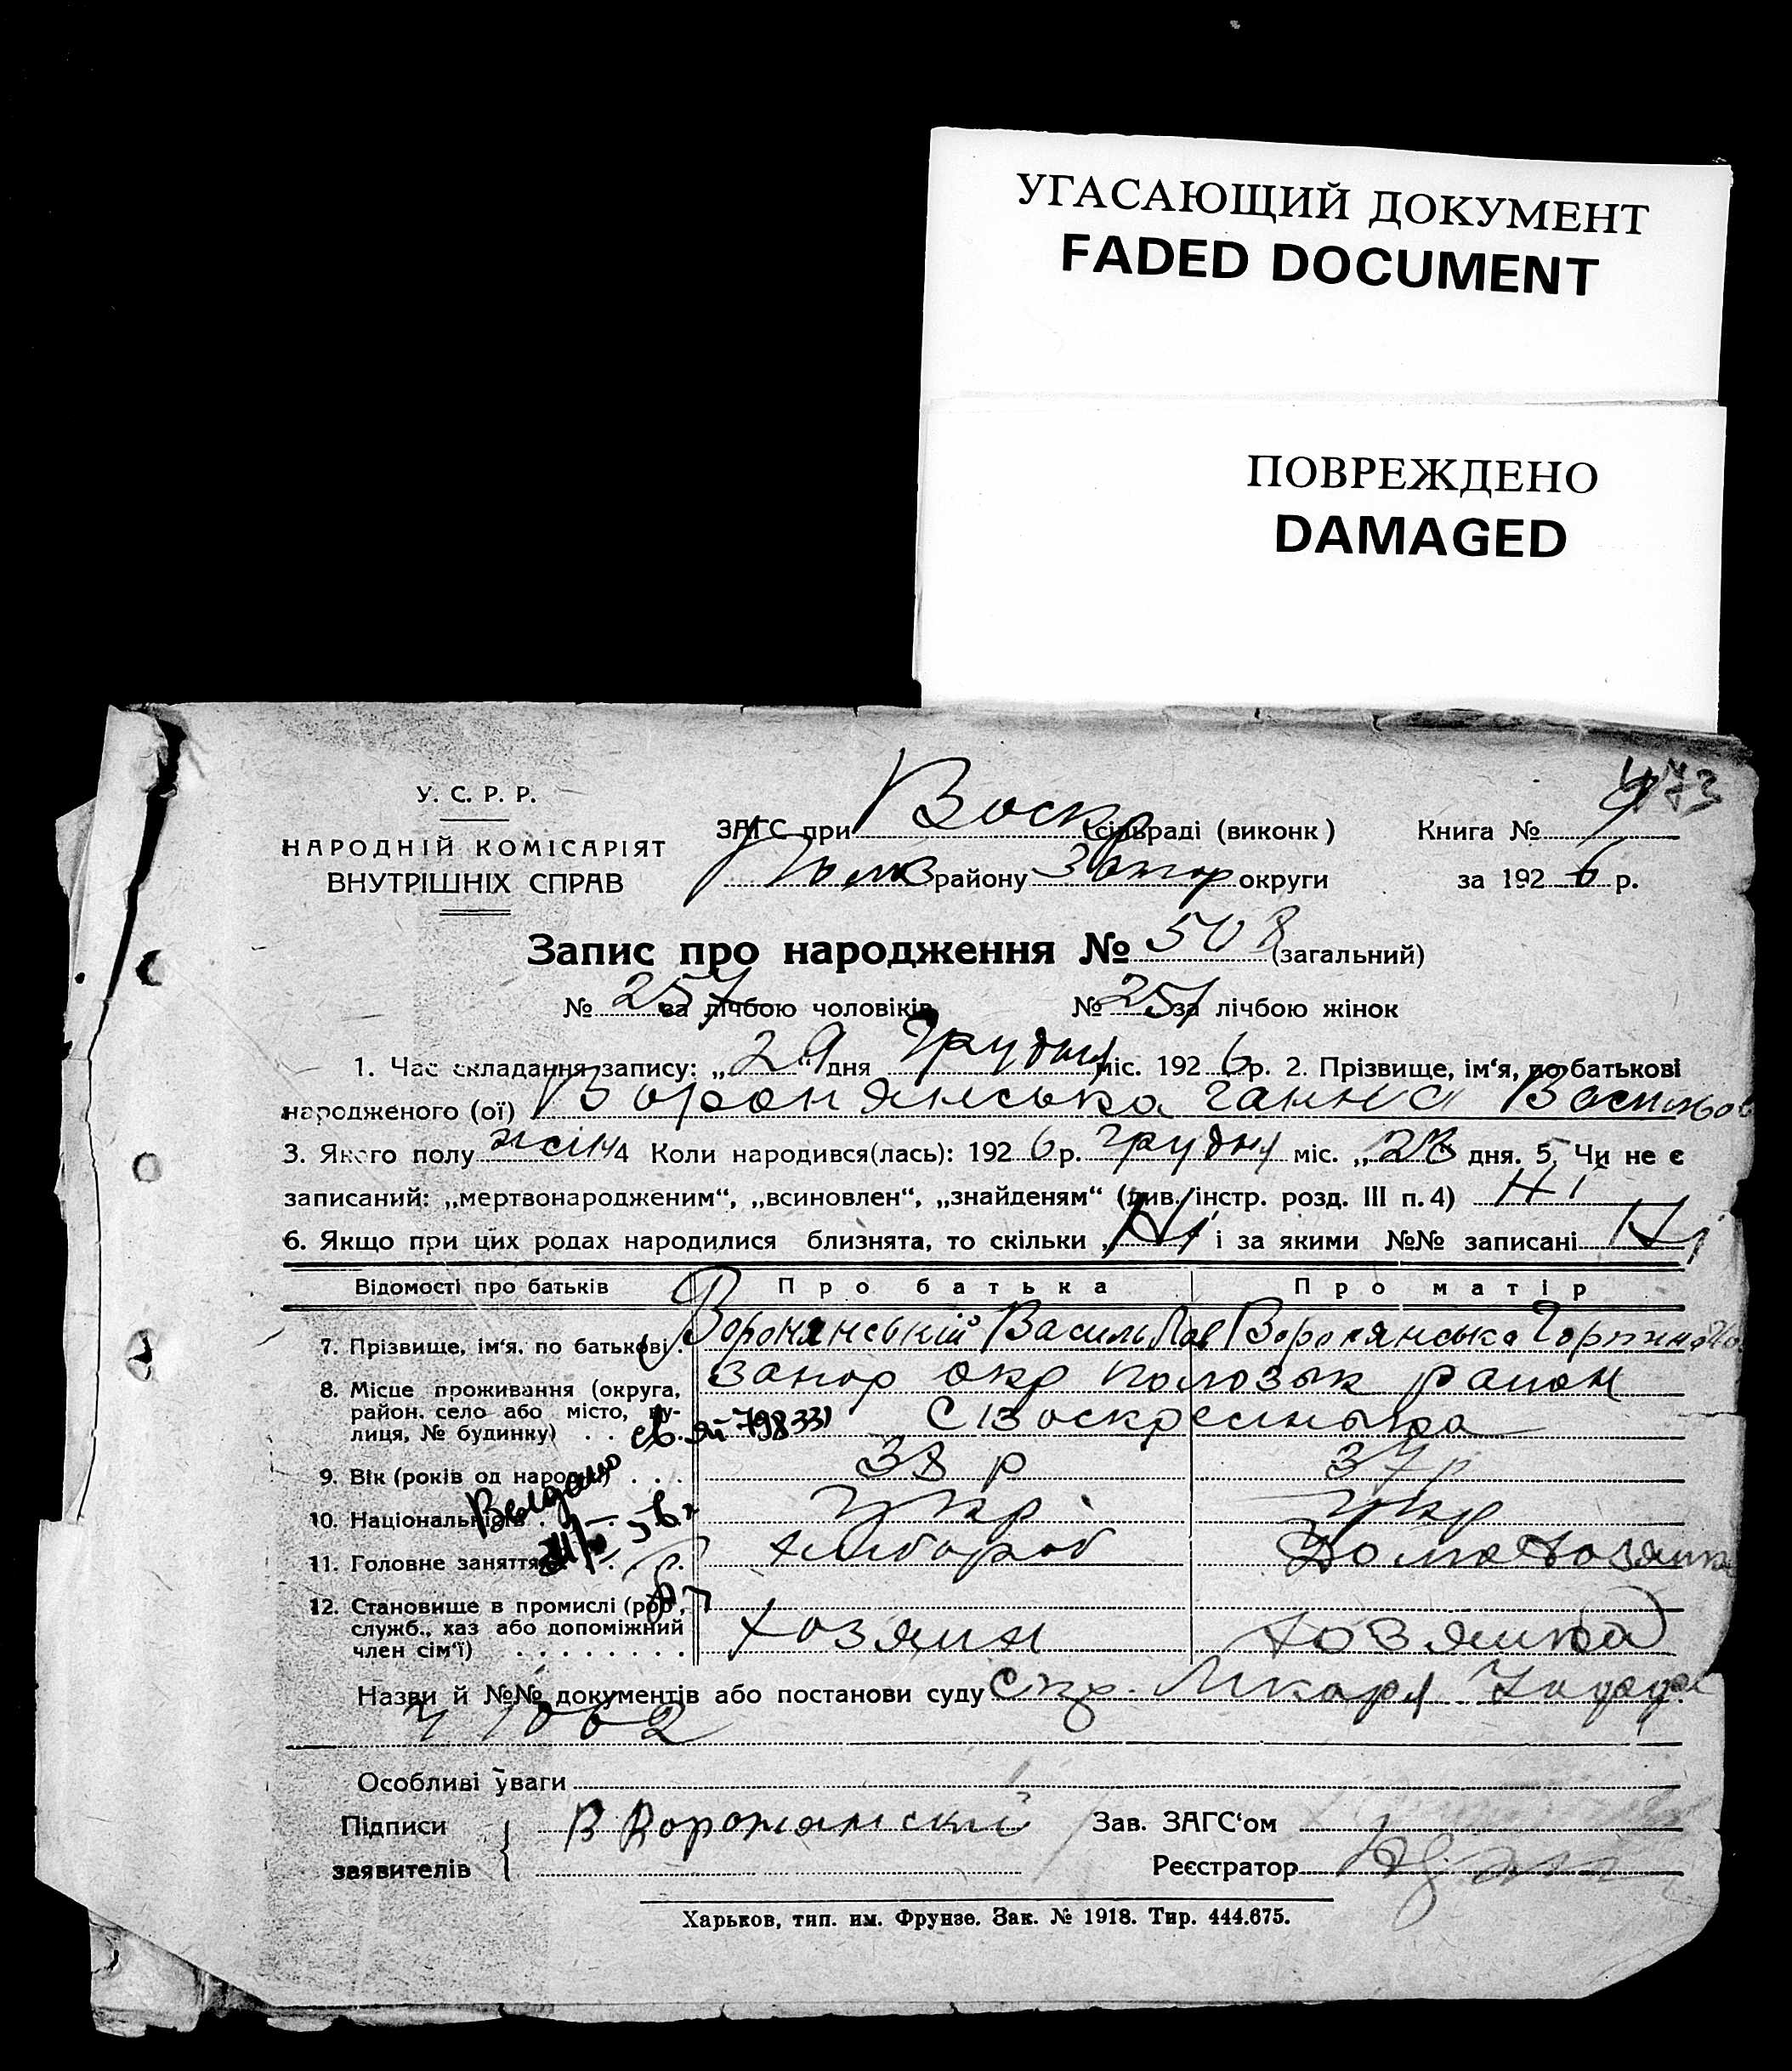 УГАСАЮЩИЙ ДОКУМЕНТ
FADED DOCUMENT
ПОВРЕЖДЕНО
DAMAGED
473
У. С. Р. Р.
НАРОДНІЙ КОМІСАРІЯТ
ВНУТРІШНІХ СПРАВ
ЗАГС при Воскр (сільраді (виконк) Книга №
району Запор округи за 1926 р.
Запис про народження № 508 (загальний)
№ 257 за лічбою чоловіків № 251 за лічбою жінок
1. Час складання запису: „29“ дня Грудня міс. 1926 р. 2. Прізвище, ім‘я, по батькові
народженого (ої) Воронянська Ганна Васильов
3. Якого полу жін 4 Коли народився(лась): 1926 р. грудня міс. „28 дня. 5. Чи не є
записаний: „мертвонародженим“, „всиновлен“, „знайденям“ (див. інстр. розд. III п. 4) Ні
6. Якщо при цих родах народилися близнята, то скільки „Ні і за якими №№ записані Ні
Відомості про батьків Про батька Про матір
7. Прізвище, ім‘я, по батькові . Воронянський Василь Пав Воронянська Горпина
8. Місце проживання (округа, район, село або місто, вулиця, № будинку) . . запор окр пологзьк район
с Воскресенька
св. 798331
9. Вік (років од народж.) . . . 38 р 37 р
Выдано
10. Національність . . . укр укр
11. Головне заняття . . . хлібороб Домохозяйка
12. Становище в промислі (роб., служб., хаз або допоміжний член сім‘ї) . . . . . . . . хозяин хозяйка
Назви й №№ документів або постанови суду
Особливі уваги
Підписи В Воронянский Зав. ЗАГС‘ом
заявителів Реєстратор
Харьков, тип. им. Фрунзе. Зак. № 1918. Тир. 444.675.